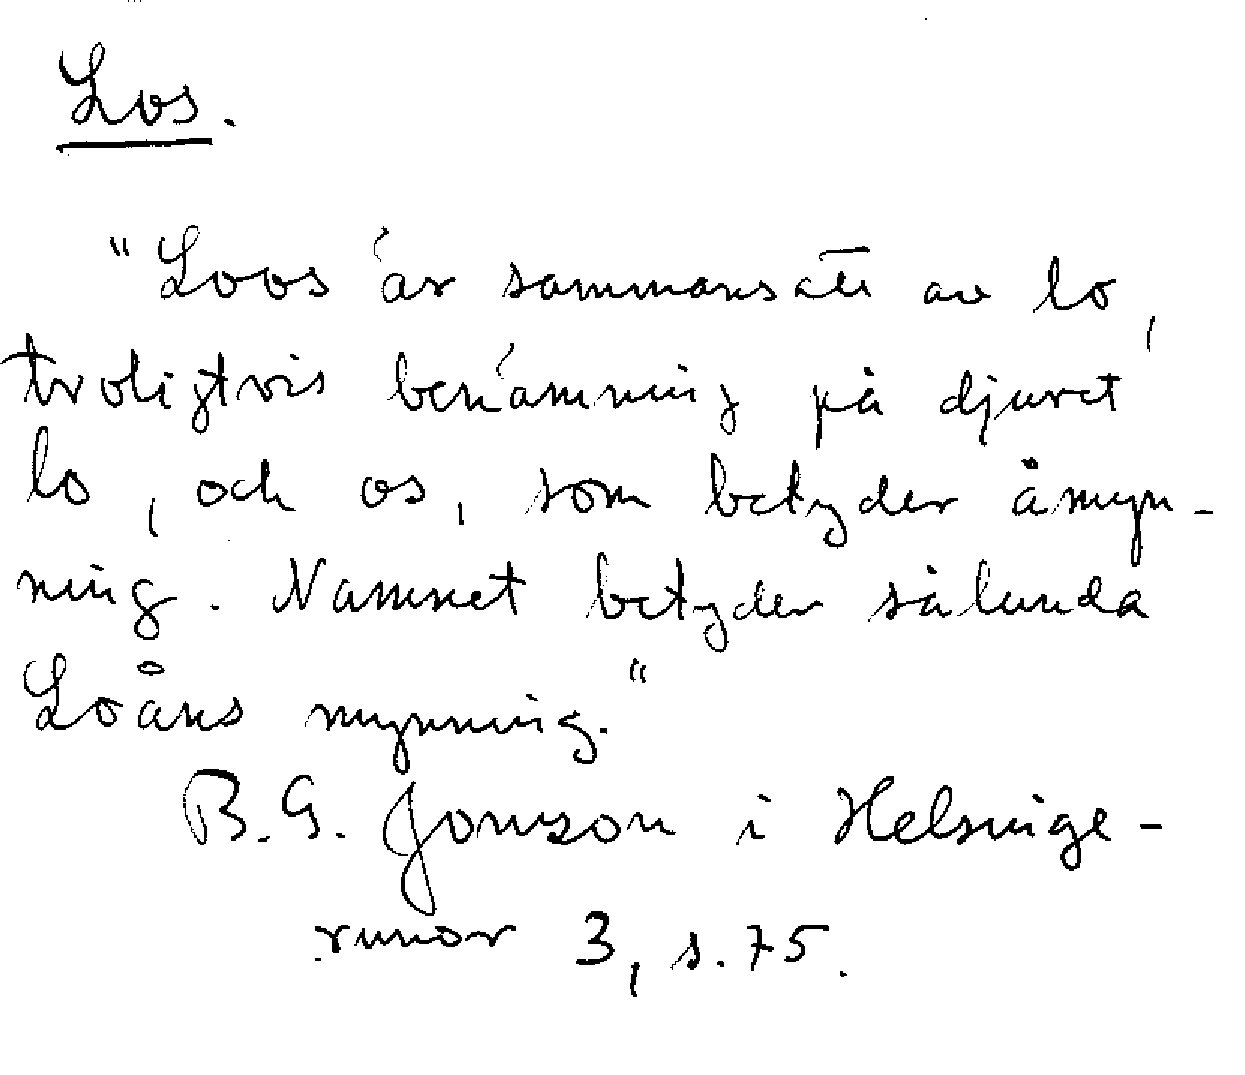 Los.
"Loos är sammansatt av lo,
troligtvis benämning på djuret
lo, och os, som betyder åmyn-
ning. Namnet betyder sålunda
Loåns mynning."
B.G. Jonzson i Helsinge-
runor 3, s. 75.